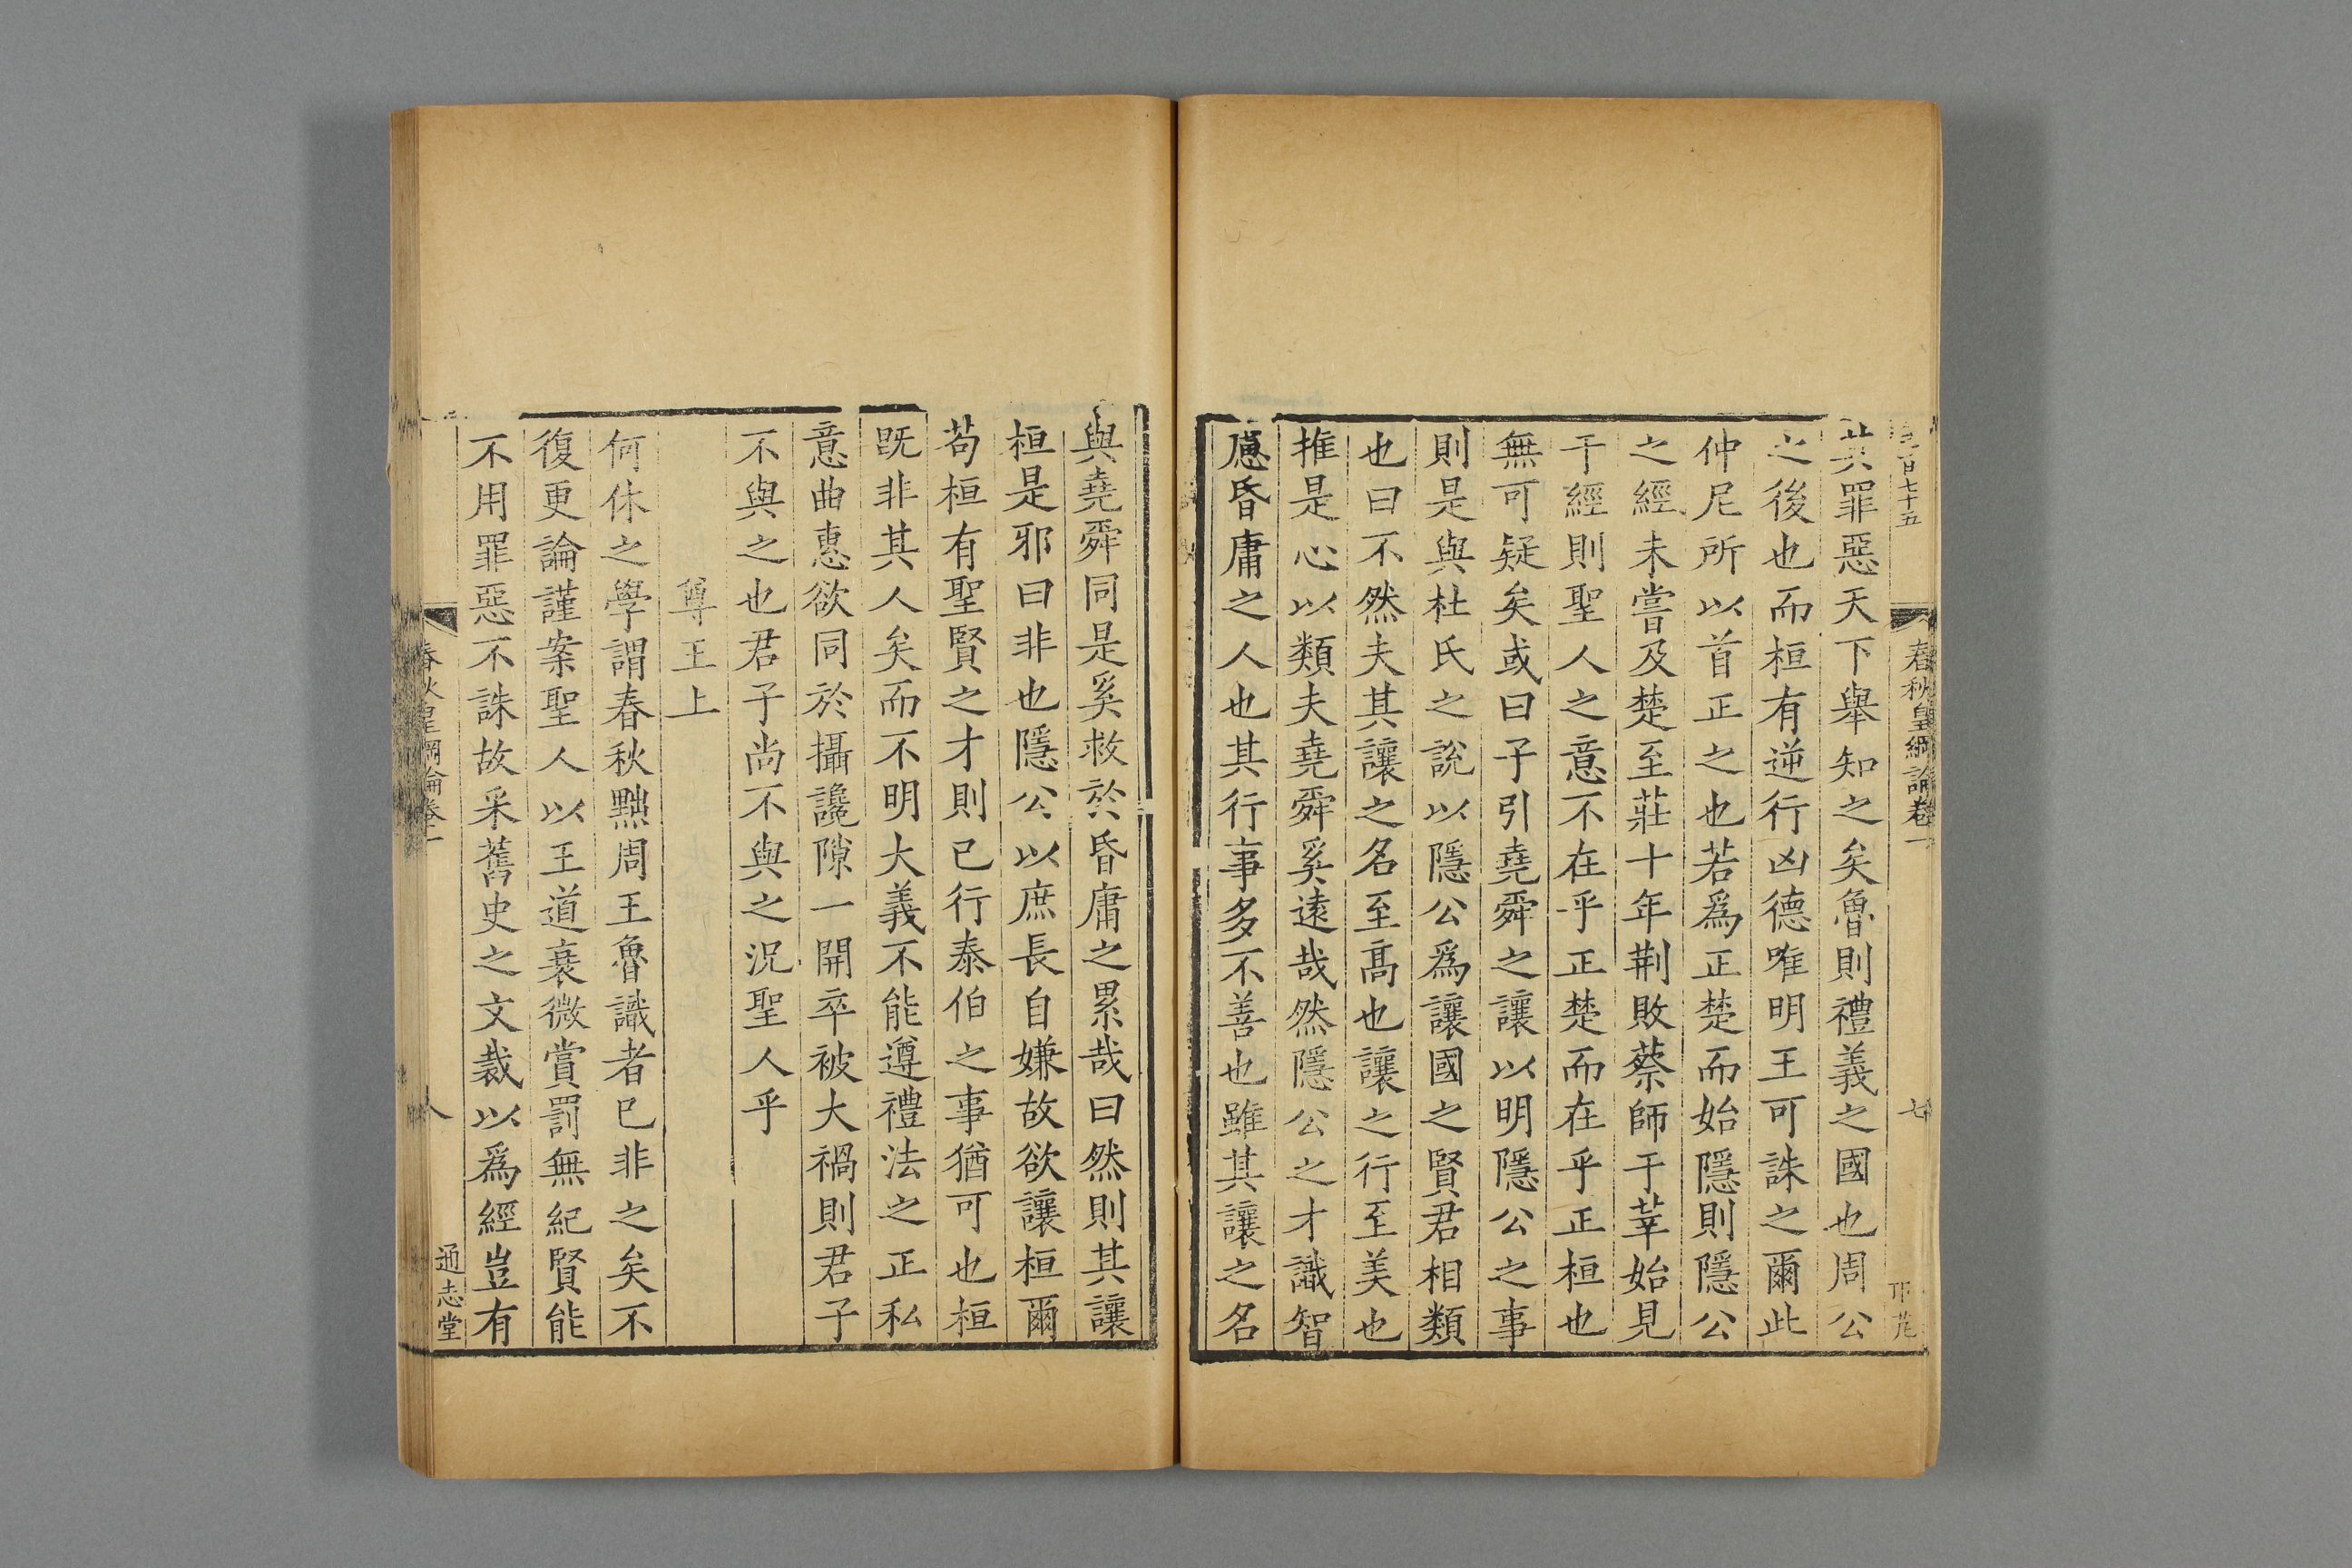 百七十五
春秋皇綱論卷一
七
其罪惡天下舉知之矣魯則禮義之國也周公
之後也而桓有逆行凶德唯明王可誅之爾此
仲尼所以首正之也若爲正楚而始隱則隱公
之經未嘗及楚至莊十年荆敗蔡師于莘始見
于經則聖人之意不在乎正楚而在乎正桓也
無可疑矣或曰子引堯舜之讓以明隱公之事
則是與杜氏之說以隱公爲讓國之賢君相類
也曰不然夫其讓之名至髙也讓之行至美也
推是心以類夫堯舜奚遠哉然隱公之才識智
慮昏庸之人也其行事多不善也雖其讓之名
與堯舜同是奚救於昏庸之累哉曰然則其讓
桓是邪曰非也隱公以庶長自嫌故欲讓桓爾
苟桓有聖賢之才則已行泰伯之事猶可也桓
旣非其人矣而不明大義不能遵禮法之正私
意曲惠欲同於攝讒隙一開卒被大禍則君子
不與之也君子尚不與之况聖人乎
尊王上
何休之學謂春秋黜周王魯識者已非之矣不
復更論謹案聖人以王道衰微賞罰無紀賢能
不用罪惡不誅故采舊史之文裁以爲經豈有
春秋皇綱論卷一
八
通志堂